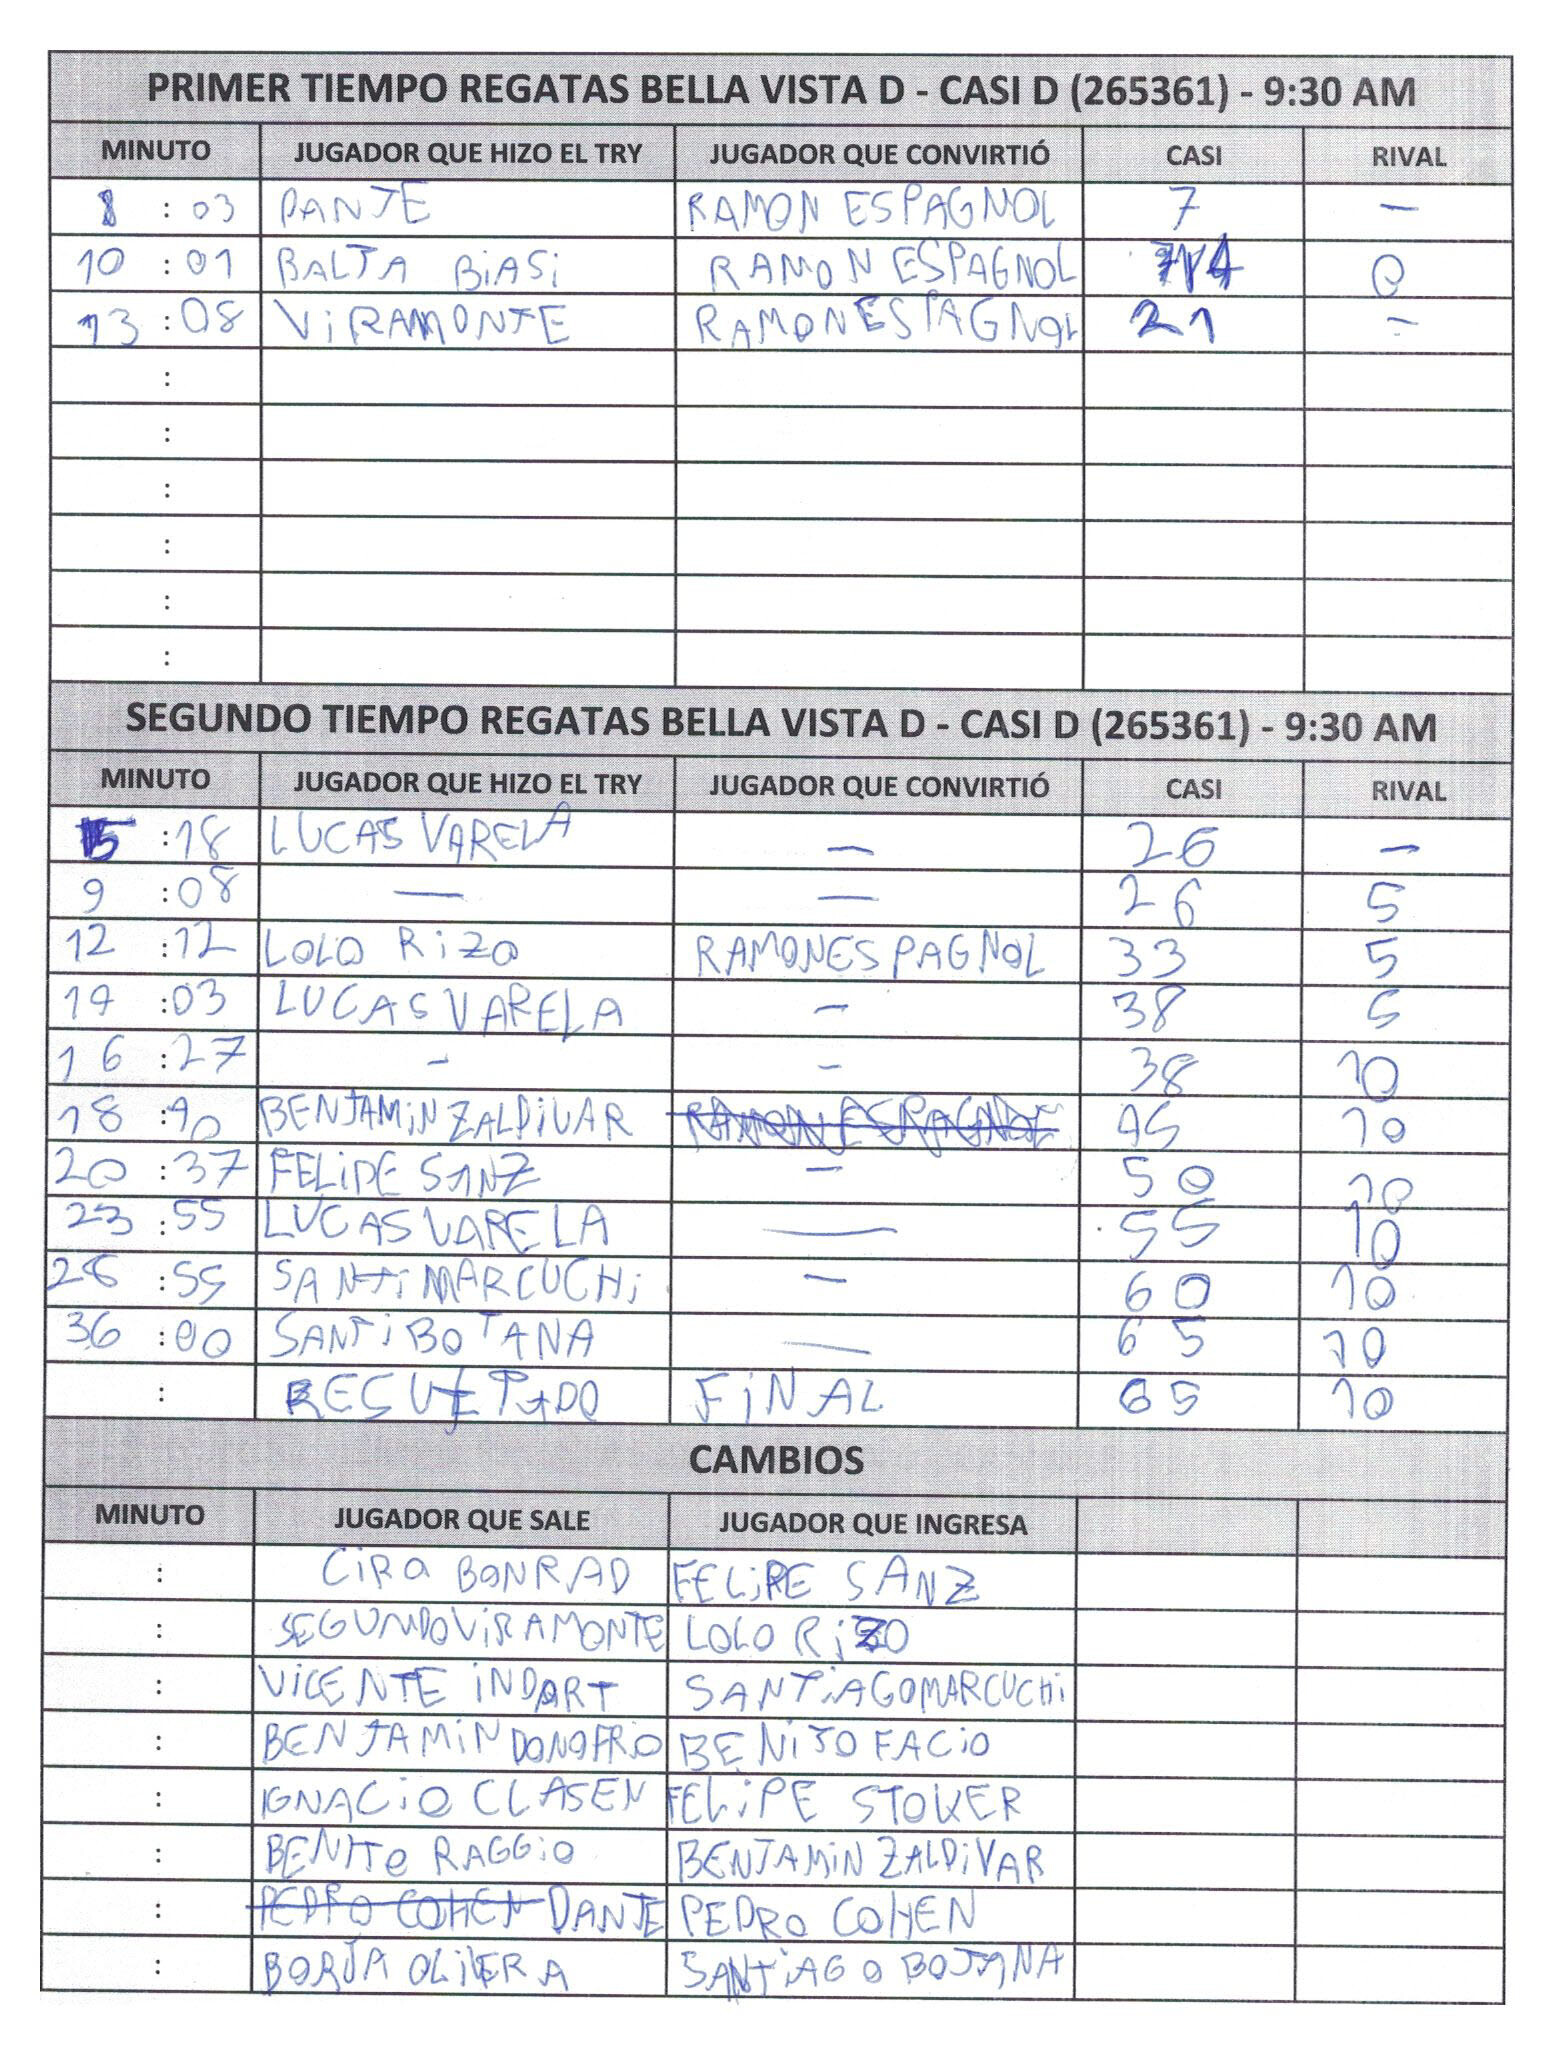 PRIMER TIEMPO REGATAS BELLA VISTA D - CASI D (265361) - 9:30 AM
MINUTO JUGADOR QUE HIZO EL TRY JUGADOR QUE CONVIRTIÓ CASI RIVAL
: 03 DANTE RAMON ESPAGNOL 7 -
10 : 01 BALTA BiASi RAMON ESPAGNOL 14 0
13 : 08 ViRAMONTE RAMON ESPAGNOL 21 -
:
:
:
:
:
:
SEGUNDO TIEMPO REGATAS BELLA VISTA D - CASI D (265361) - 9:30 AM
MINUTO JUGADOR QUE HIZO EL TRY JUGADOR QUE CONVIRTIÓ CASI RIVAL
5 :18 LUCAS VARELA - 26 -
9 :08 - - 26 5
12 :12 LOLO RiZO RAMON ESPAGNOL 33 5
14 :03 LUCAS VARELA - 38 5
16 :27 - - 38 10
18 :40 BENJAMiN ZALDiVAR RAMON ESPAGNOL 45 10
20 :37 FELiPE SANZ - 50 10
23 :55 LUCAS VARELA - 55 10
28 :55 SANTi MARCUCHi - 60 10
36 :00 SANTi BOTANA - 65 10
: RESULTADO FiNAL 65 10
CAMBIOS
MINUTO JUGADOR QUE SALE JUGADOR QUE INGRESA
: CiRO BONRAD FELiPE SANZ
: SEGUNDO ViRAMONTE LOLO RiZO
: ViCENTE iNDART SANTiAGO MARCUCHi
: BENJAMiN DONOFRIO BENiTO FACiO
: IGNACiO CLASEN FELiPE STOKER
: BENITO RAGGiO BENJAMiN ZALDiVAR
: PEDRO COHEN DANTE PEDRO COHEN
: BORJA OLIVERA SANTiAGO BOTANA